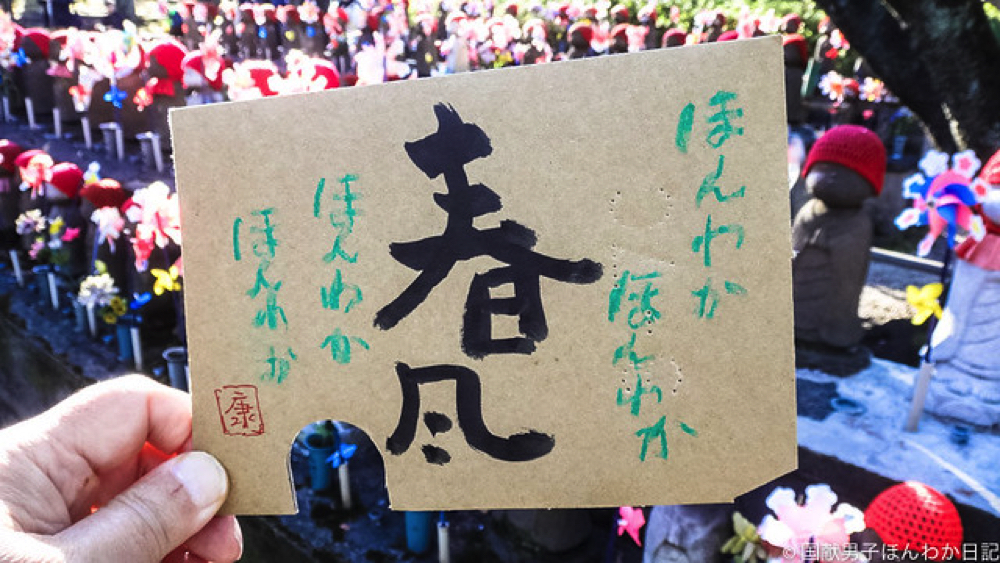 ほんわか
ほんわか
春風
ほんわか
ほんわか
康
©国献男子ほんわか日記